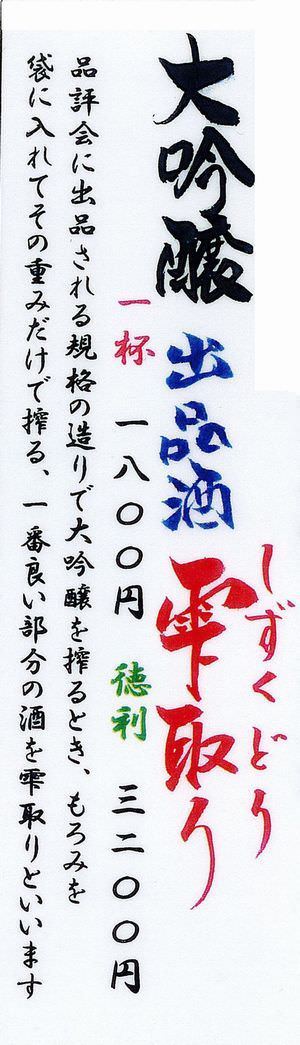 しずくどり
大吟醸 出品酒 雫取り
一杯 一八〇〇円 徳利 三二〇〇円
品評会に出品される規格の造りで大吟醸を搾るとき、もろみを
袋に入れてその重みだけで搾る、一番良い部分の酒を雫取りといいます